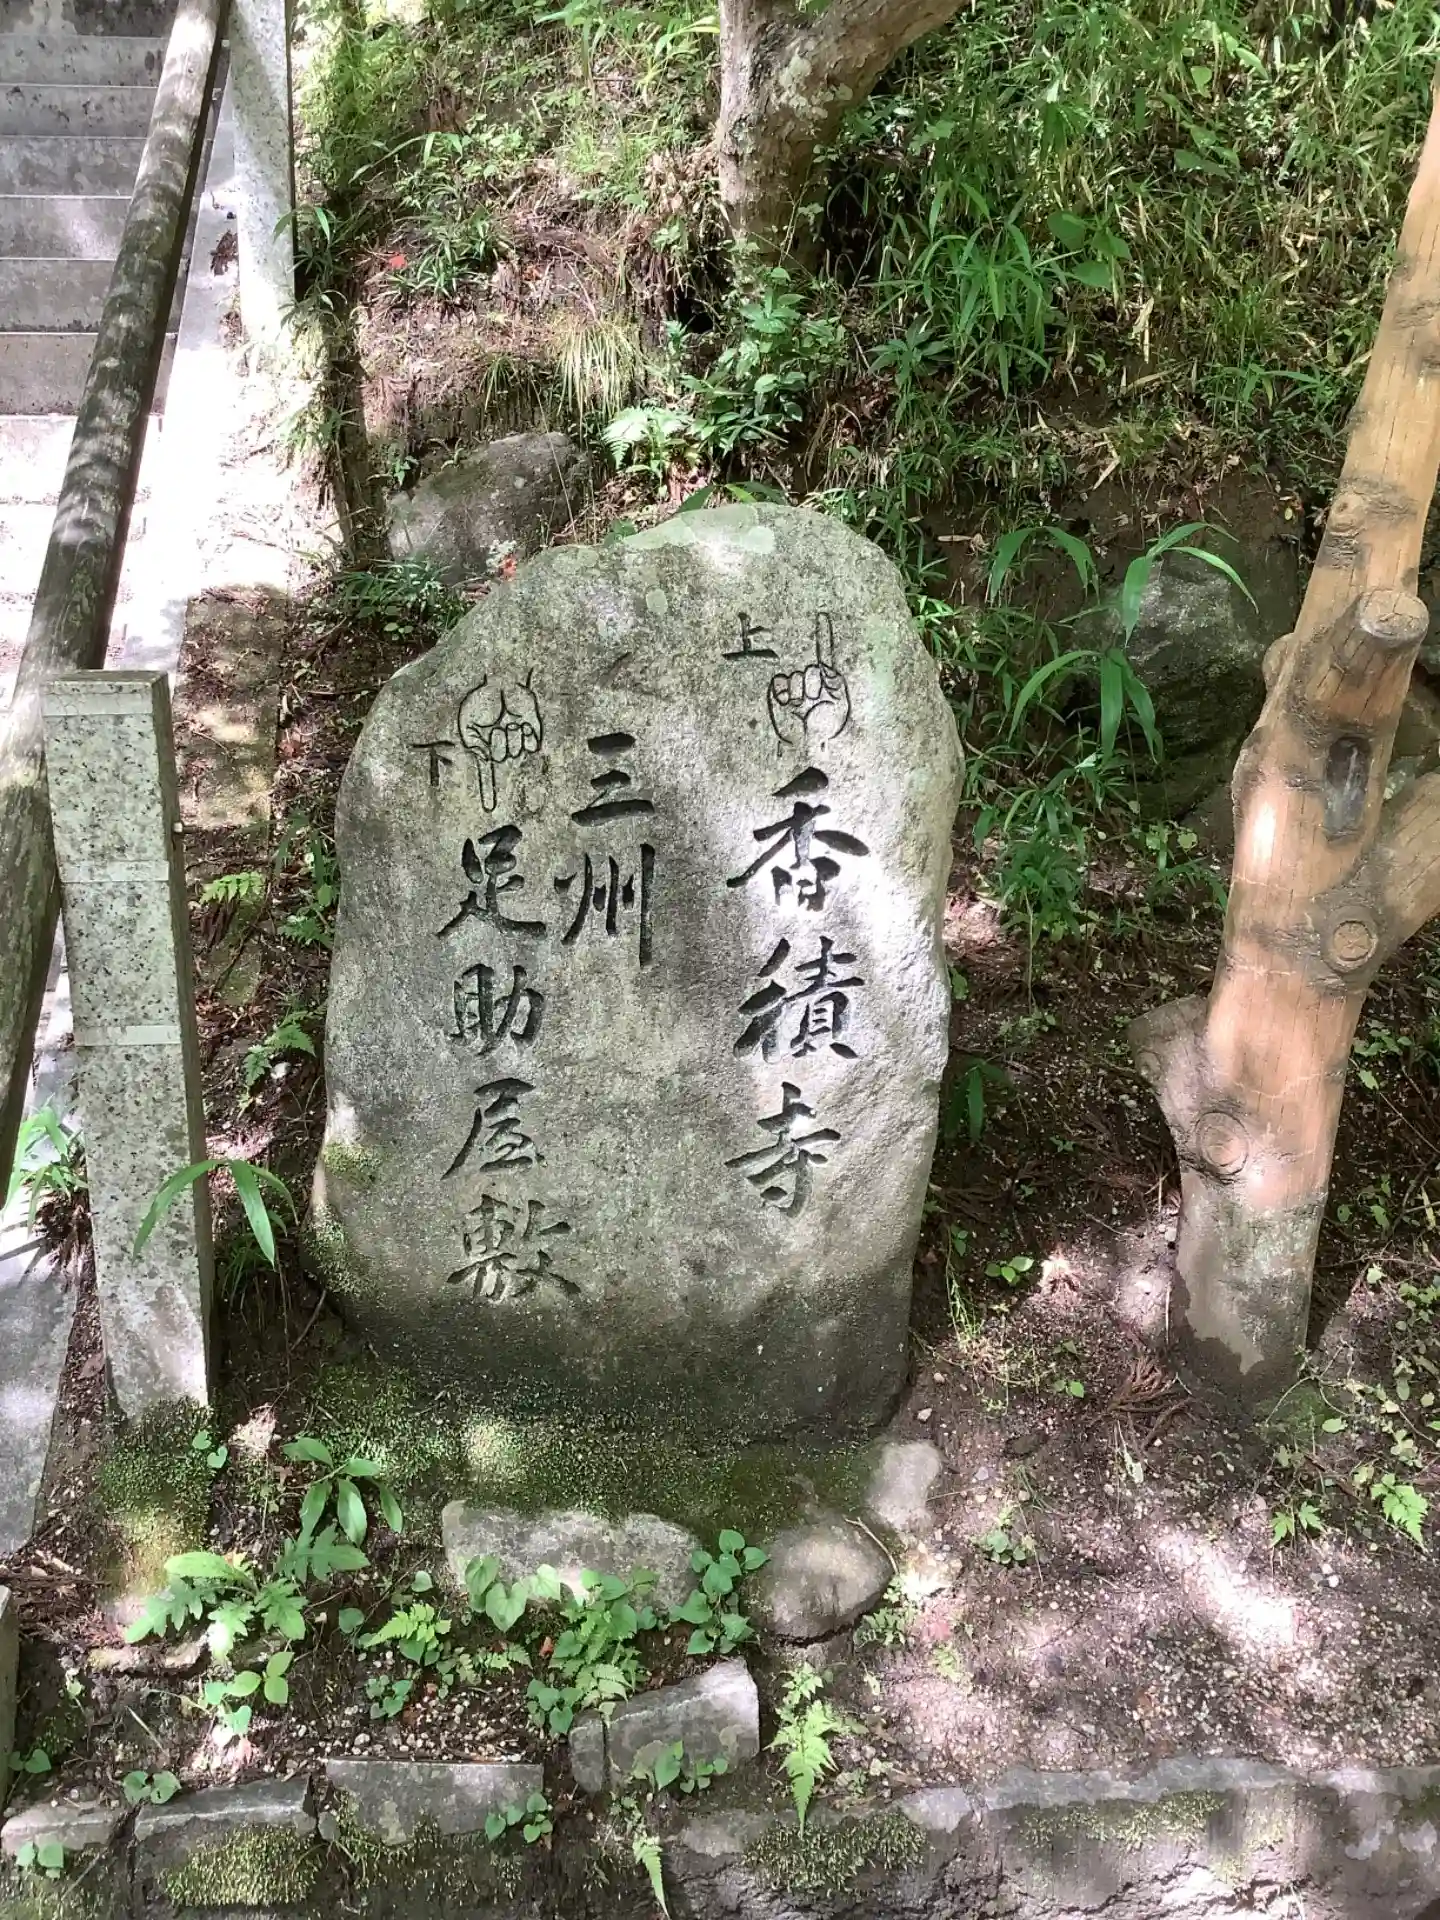 上
香積寺
三州
下
足助屋敷